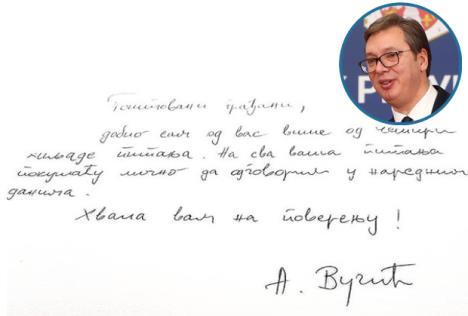 Поштовани грађани,
добио сам од вас више од четири
хиљаде питања. На сва ваша питања
покушаћу лично да одговорим у наредним
данима.
Хвала вам на поверењу!
А. Вучић